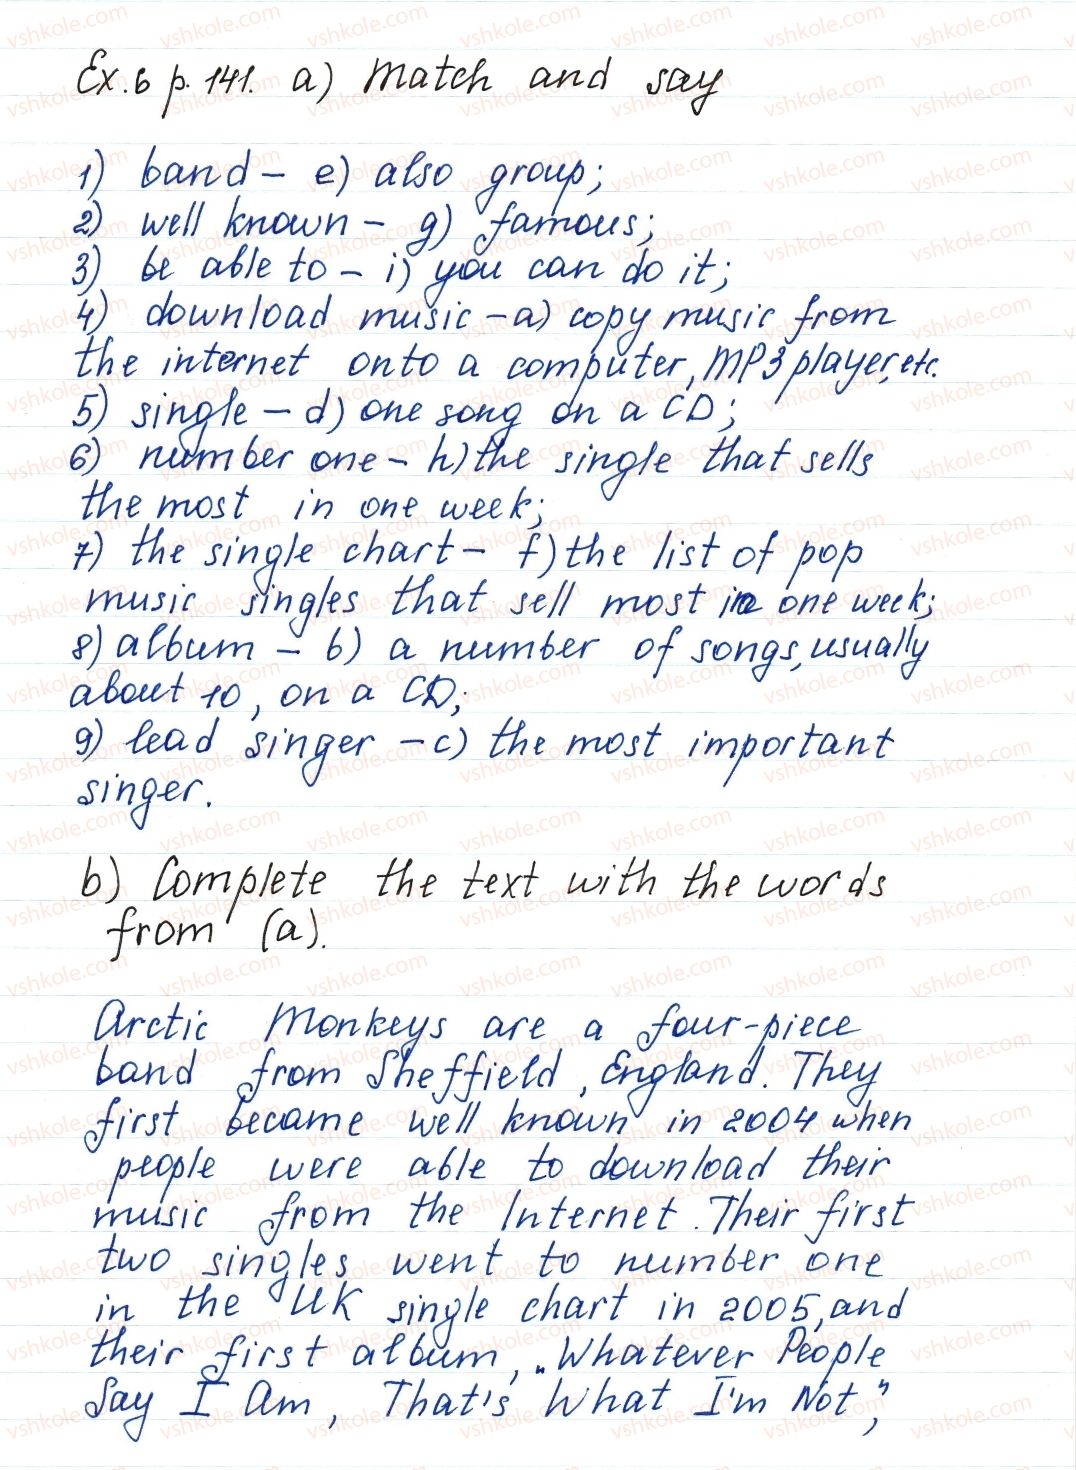 Ex.6 p.141. a) Match and say
1) band – e) also group;
2) well known – g) famous;
3) be able to – i) you can do it;
4) download music – a) copy music from
the internet onto a computer, MP3 player, etc.
5) single – d) one song on a CD;
6) number one – h) the single that sells
the most in one week;
7) the single chart – f) the list of pop
music singles that sell most in one week;
8) album – b) a number of songs, usually
about 10, on a CD;
9) lead singer – c) the most important
singer.
b) Complete the text with the words
from (a).
Arctic Monkeys are a four-piece
band from Sheffield, England. They
first became well known in 2004 when
people were able to download their
music from the Internet. Their first
two singles went to number one
in the UK single chart in 2005, and
their first album, „Whatever People
Say I Am, That's What I'm Not",